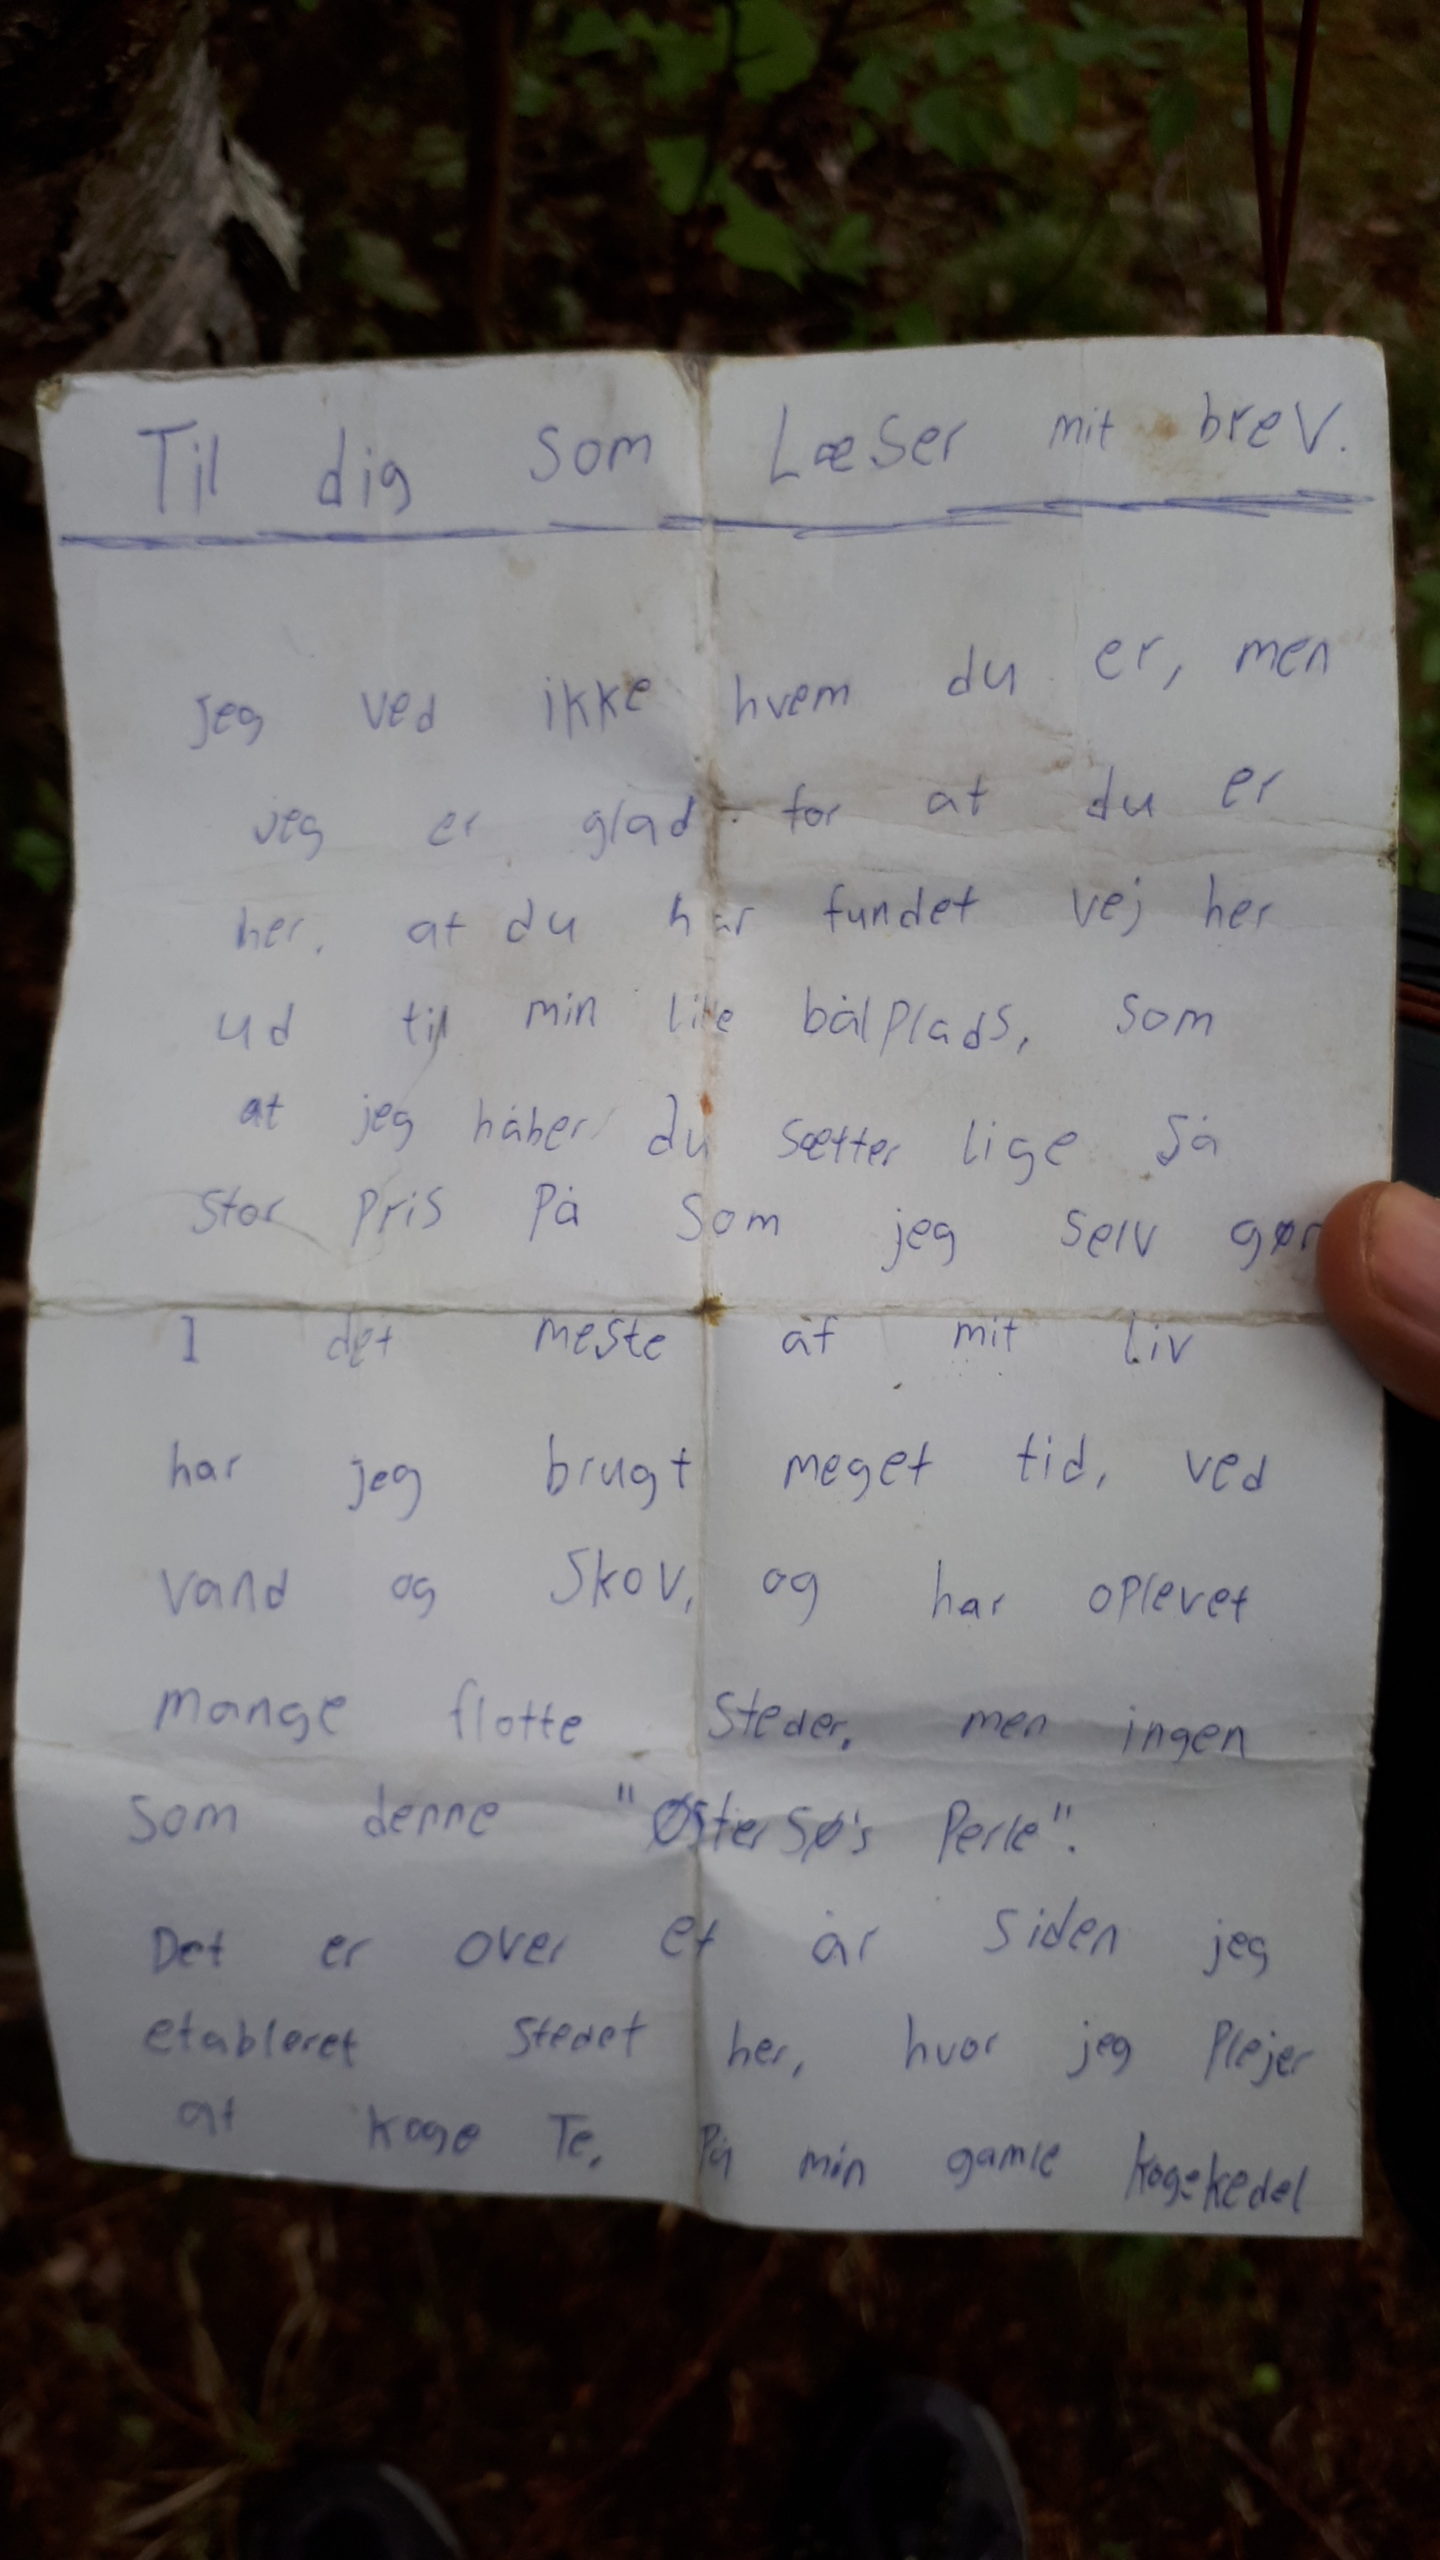 Til dig som Læser mit brev.
jeg ved ikke hvem du er, men
jeg er glad for at du er
her, at du har fundet vej her
ud til min lille bålplads, som
at jeg håber du sætter lige så
stor pris på som jeg selv gør
I det meste af mit liv
har jeg brugt meget tid, ved
vand og skov, og har oplevet
mange flotte steder, men ingen
som denne "Øster Sø's Perle".
Det er over et år siden jeg
etableret stedet her, hvor jeg plejer
at koge Te, På min gamle kogekedel